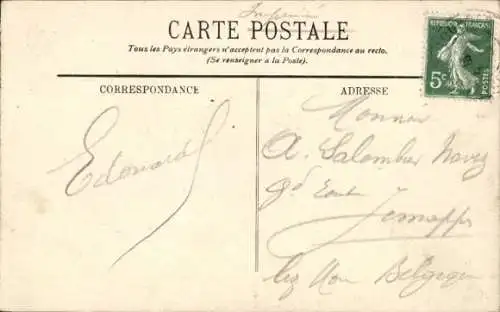 Imprimé
CARTE POSTALE
Tous les Pays étrangers n'acceptent pas la Correspondance au recto.
(Se renseigner à la Poste).
RÉPUBLIQUE FRANÇAISE
5c
POSTES
CORRESPONDANCE
ADRESSE
Edouard
Monsieur
A. Salembier
Jemappes
lez Mons Belgique